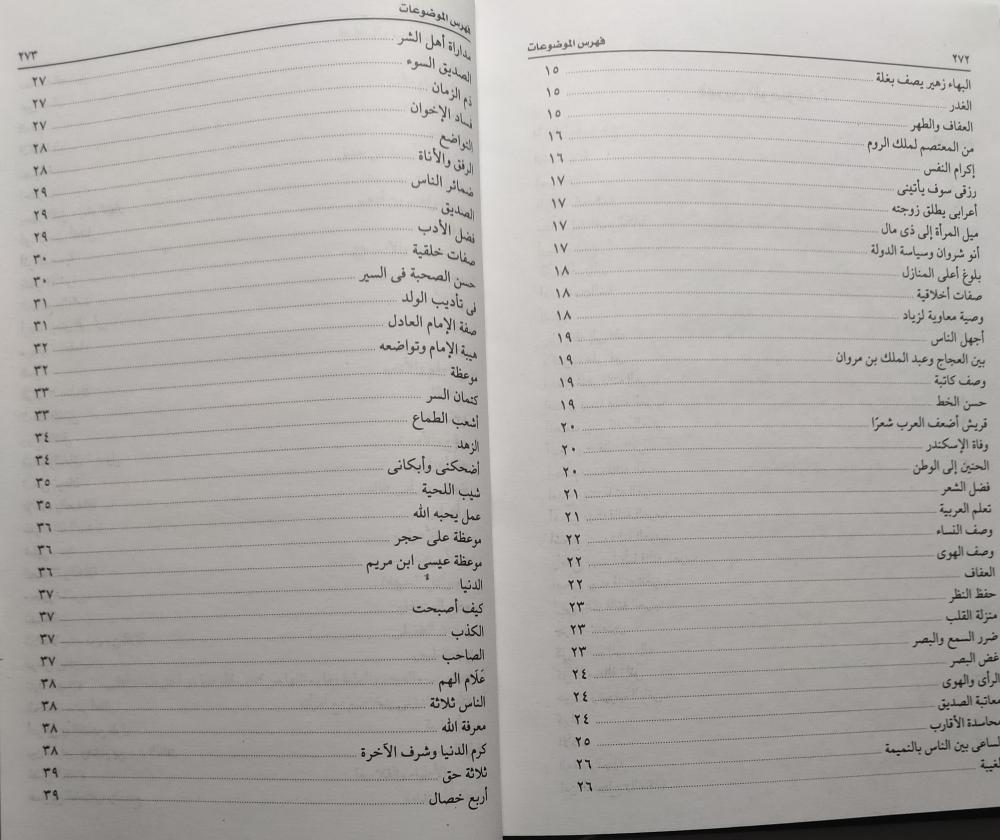 ٢٧٢ فهرس الموضوعات
البهاء زهير يصف بغلة ١٥
الغدر ١٥
العفاف والطهر ١٥
من المعتصم لملك الروم ١٦
إكرام النفس ١٦
رزقى سوف يأتينى ١٧
أعرابى يطلق زوجته ١٧
ميل المرأة إلى ذى مال ١٧
أنو شروان وسياسة الدولة ١٧
بلوغ أعلى المنازل ١٨
صفات أخلاقية ١٨
وصية معاوية لزياد ١٨
أجهل الناس ١٩
بين العجاج وعبد الملك بن مروان ١٩
وصف كاتبة ١٩
حسن الخط ١٩
قريش أضعف العرب شعرًا ٢٠
وفاة الإسكندر ٢٠
الحنين إلى الوطن ٢٠
فضل الشعر ٢١
تعلم العربية ٢١
وصف النساء ٢٢
وصف الهوى ٢٢
العفاف ٢٢
حفظ النظر ٢٣
منزلة القلب ٢٣
ضرر السمع والبصر ٢٣
غض البصر ٢٤
الرأى والهوى ٢٤
معاتبة الصديق ٢٤
محاسدة الأقارب ٢٥
لساعى بين الناس بالنميمة ٢٦
لغيبة ٢٦
فهرس الموضوعات ٢٧٣
مداراة أهل الشر ٢٧
الصديق السوء ٢٧
ذم الزمان ٢٧
فساد الإخوان ٢٨
التواضع ٢٨
الرفق والأناة ٢٩
ضمائر الناس ٢٩
الصديق ٢٩
فضل الأدب ٣٠
صفات خلقية ٣٠
حسن الصحبة فى السير ٣١
فى تأديب الولد ٣١
صفة الإمام العادل ٣٢
هيبة الإمام وتواضعه ٣٢
موعظة ٣٣
كتمان السر ٣٣
أشعب الطماع ٣٤
الزهد ٣٤
أضحكنى وأبكانى ٣٥
شيب اللحية ٣٥
عمل يحبه الله ٣٦
موعظة على حجر ٣٦
موعظة عيسى ابن مريم ٣٦
الدنيا ٣٧
كيف أصبحت ٣٧
الكذب ٣٧
الصاحب ٣٧
عَلَام الهم ٣٨
الناس ثلاثة ٣٨
معرفة الله ٣٨
كرم الدنيا وشرف الآخرة ٣٨
ثلاثة حق ٣٩
أربع خصال ٣٩